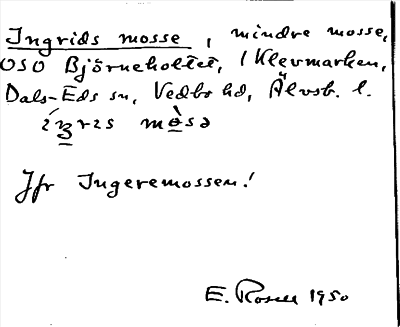 Ingrids mosse, mindre mosse,
OSO Björneholtet, i Klevmarken,
Dals-Eds sn, Vedbo hd, Älvsb. l.
Jfr Ingeremossen!
E. Rosell 1950